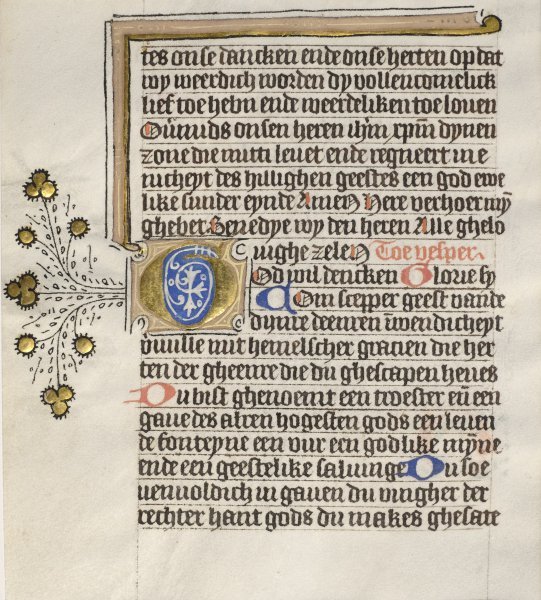 tes onse dancken ende onse herten op dat
wy weerdich worden dy vollencomelick
lief toe hebn ende weerdeliken toe louen
Ouermids onsen heren ihm xpm dynen
zone die mitti leuet ende regneert ine
nicheyt des hillighen geestes een god ewe
like sunder eynde Amen Here verhoer myn
ghebet Benedye wy den heren Alle ghelo
uighe zelen Toe vesper.
God wil dencken Glorie sy
Com scepper geest vande
dynre deenren inwendicheyt
vvulle mit hemelscher gracien die her
ten der gheenre die du ghescapen heues
Du bist ghenoemt een troester en een
gaue des alren hogesten gods een leuen
de fonteyne een vur een godlike myne
ende een geestelike saluinge Du soe
uenuoldich in gauen du vingher der
rechter hant gods du makes ghesate